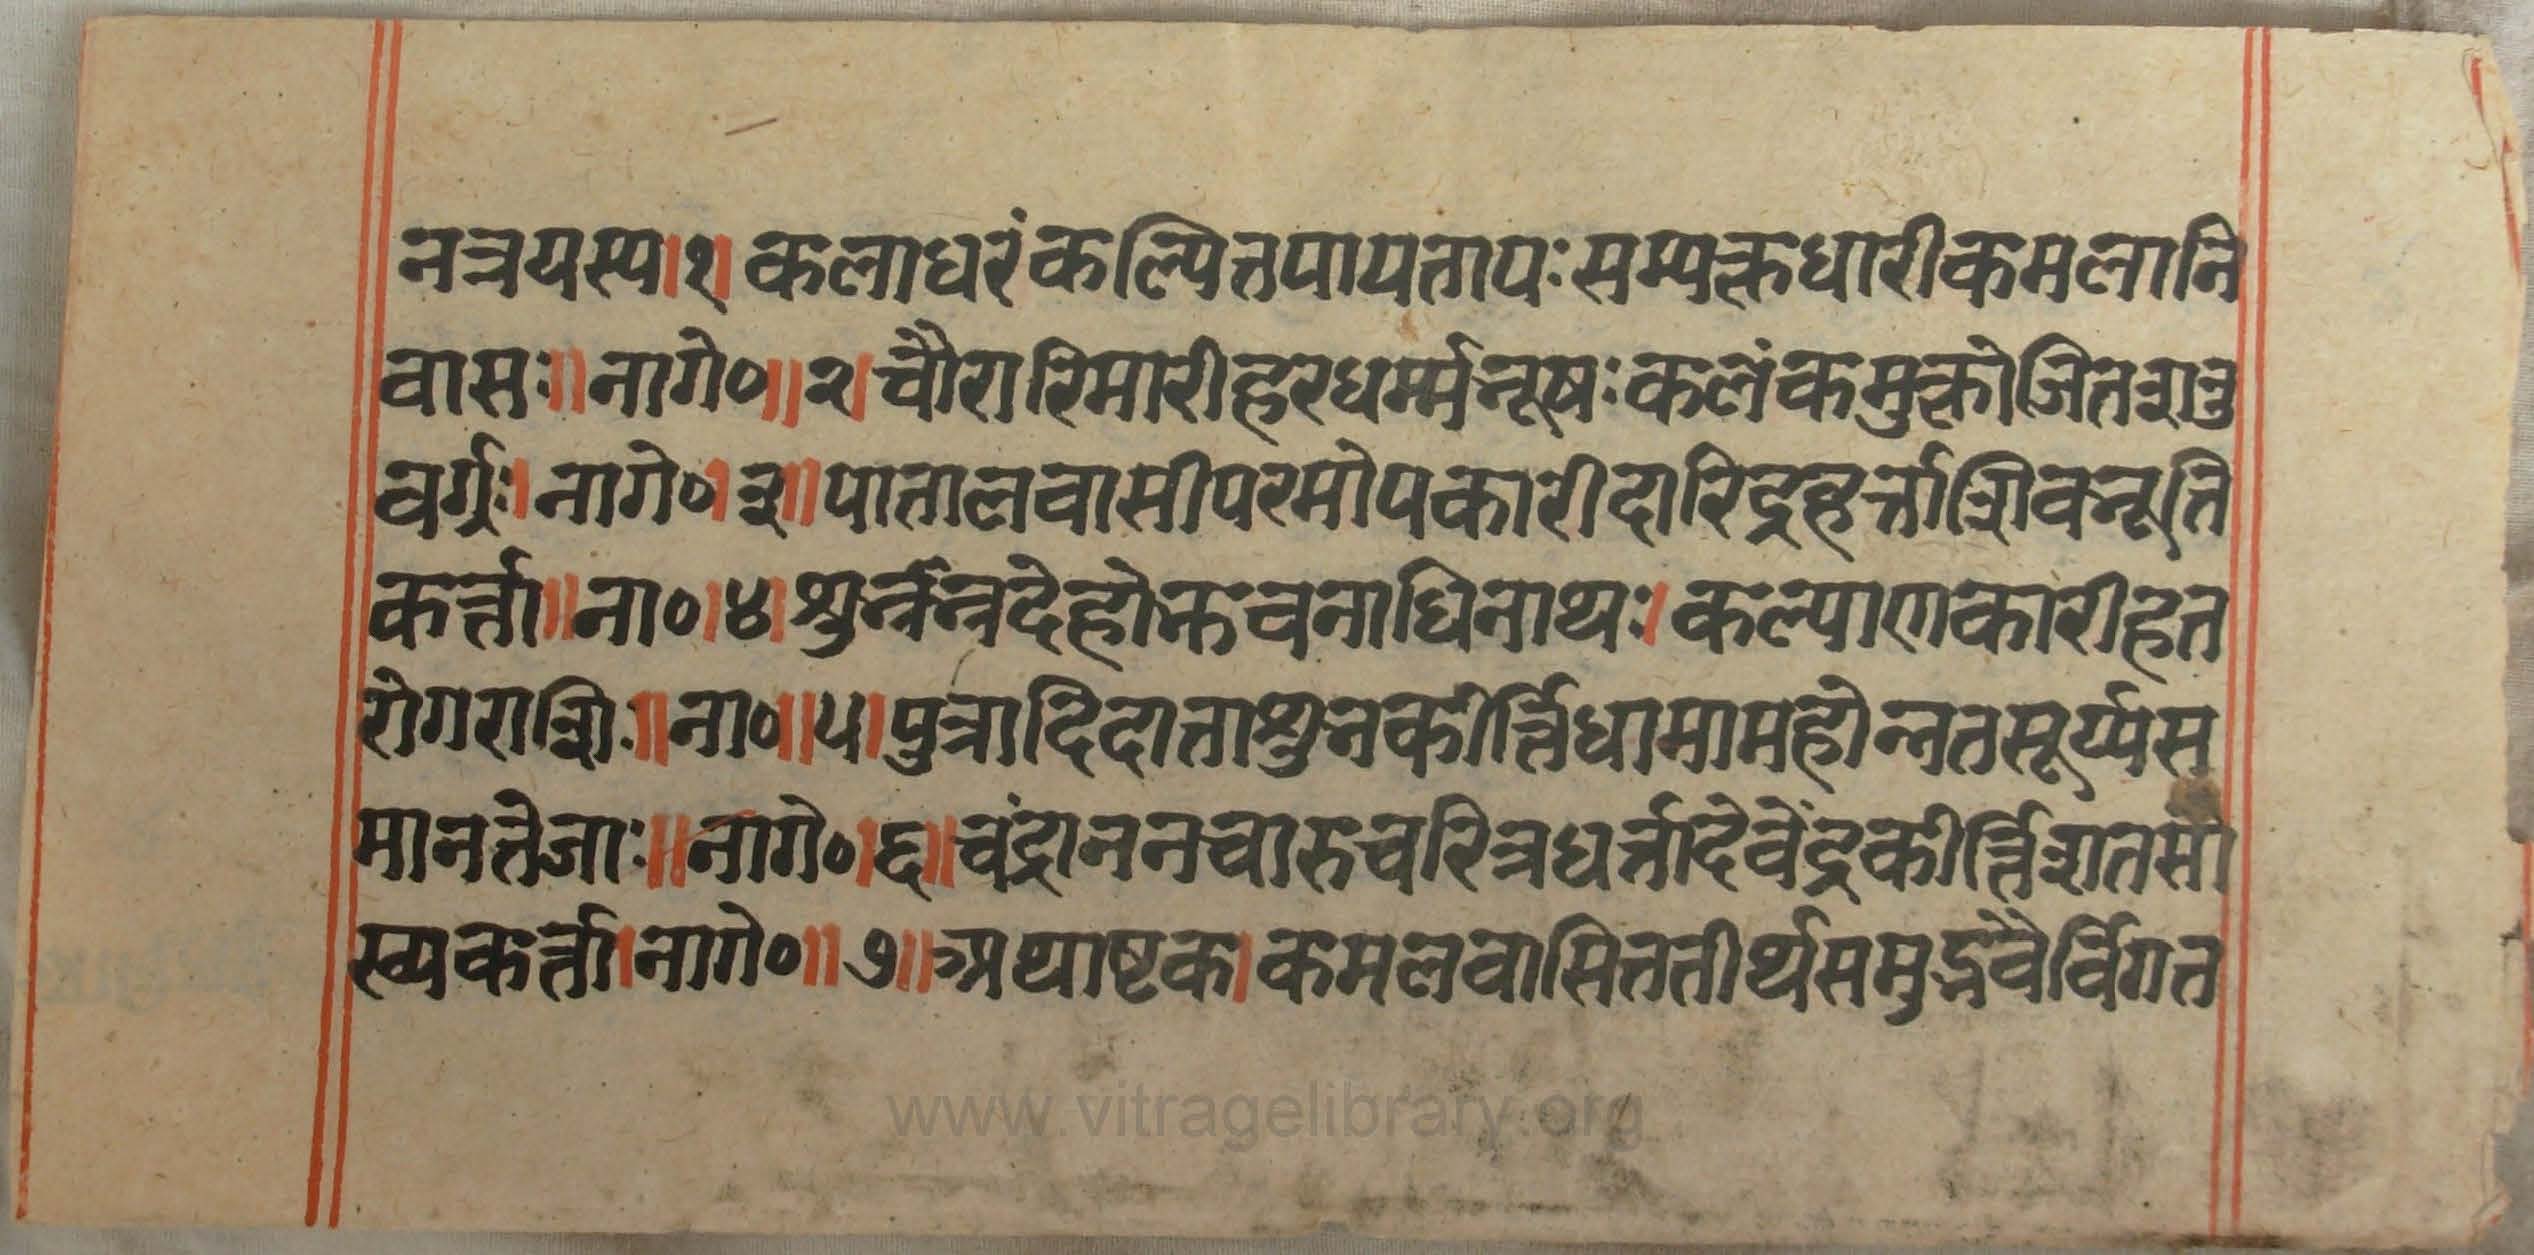 नत्रयस्य।१।कलाधरंकल्पितपायतापःसम्यक्तधारीकमलानि
वासः॥नागे०॥२।चौरारिमारीहरधर्म्मभूषःकलंकमुक्तोजितशत्रु
वर्ग्रः।नागे०।३॥पातालवासीपरमोपकारीदारिद्रहर्त्ताशिवभूति
कर्त्ता॥ना०।४।शुभ्रेन्नदेहोभवनाधिनाथः।कल्याणकारीहत
रोगराशिः॥ना०॥५।पुत्रादिदाताशुभकीर्त्तिधामामहोन्नतसूर्य्यस
मानतेजाः॥नागे०।६॥चंद्राननचारुचरित्रधर्त्तादेवेंद्रकीर्त्तिशतसौ
ख्यकर्त्ता।नागे०॥७॥अथाष्टक।कमलवासिततीर्थसमुद्भवैर्विगत
www.vitragelibrary.org